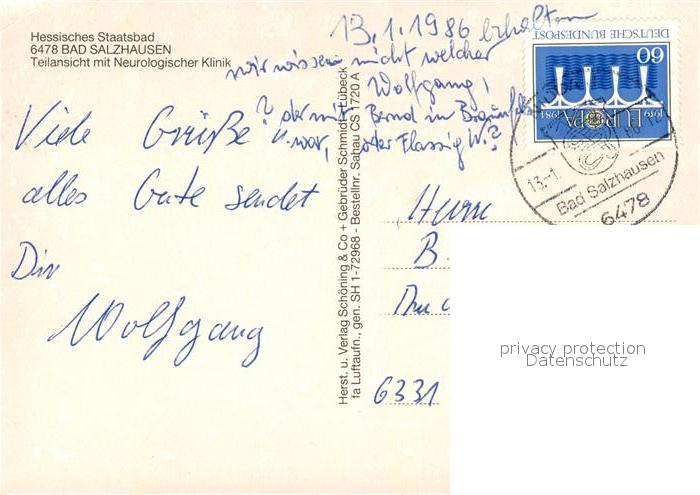 Hessisches Staatsbad
6478 BAD SALZHAUSEN
Teilansicht mit Neurologischer Klinik
13.1.1986 erhalten
wir wissen nicht welcher
Wolfgang,
? der mit Bernd in Braunfels
war, oder Flassig W.?
Viele Grüße u.
alles Gute sendet
Dir
Wolfgang
Herst. u. Verlag Schöning & Co + Gebrüder Schmidt, Lübeck
fa Luftaufn., gen. SH 1-72968 - Bestellnr. Sahau CS 1720 A
DEUTSCHE BUNDESPOST
60
1979 EUROPA 1984
13.-1.
86
Bad Salzhausen
6478
Herrn
B.
6331
privacy protection
Datenschutz